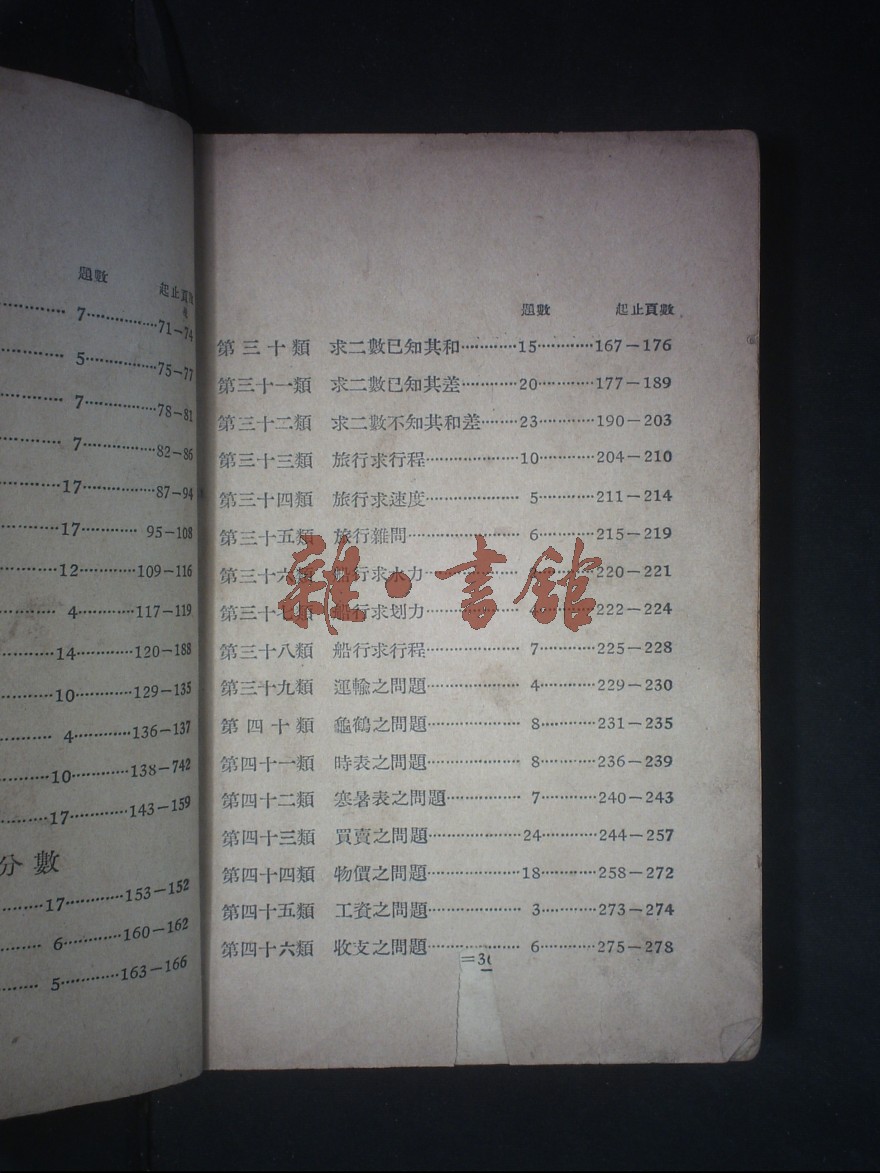 題數 起止頁數
7……71—74
5……75—77
7……78—81
7……82—86
17……87—94
17……95—108
12……109—116
4……117—119
14……120—188
10……129—135
4……136—137
10……138—742
17……143—159
分數
17……153—152
6……160—162
5……163—166
題數 起止頁數
第三十類 求二數已知其和……15……167—176
第三十一類 求二數已知其差……20……177—189
第三十二類 求二數不知其和差……23……190—203
第三十三類 旅行求行程……10……204—210
第三十四類 旅行求速度……5……211—214
第三十五類 旅行雜問……6……215—219
第三十六類 船行求水力……2……220—221
第三十七類 船行求划力……4……222—224
第三十八類 船行求行程……7……225—228
第三十九類 運輸之問題……4……229—230
第四十類 龜鶴之問題……8……231—235
第四十一類 時表之問題……8……236—239
第四十二類 寒暑表之問題……7……240—243
第四十三類 買賣之問題……24……244—257
第四十四類 物價之問題……18……258—272
第四十五類 工資之問題……3……273—274
第四十六類 收支之問題……6……275—278
=3
雜·書館